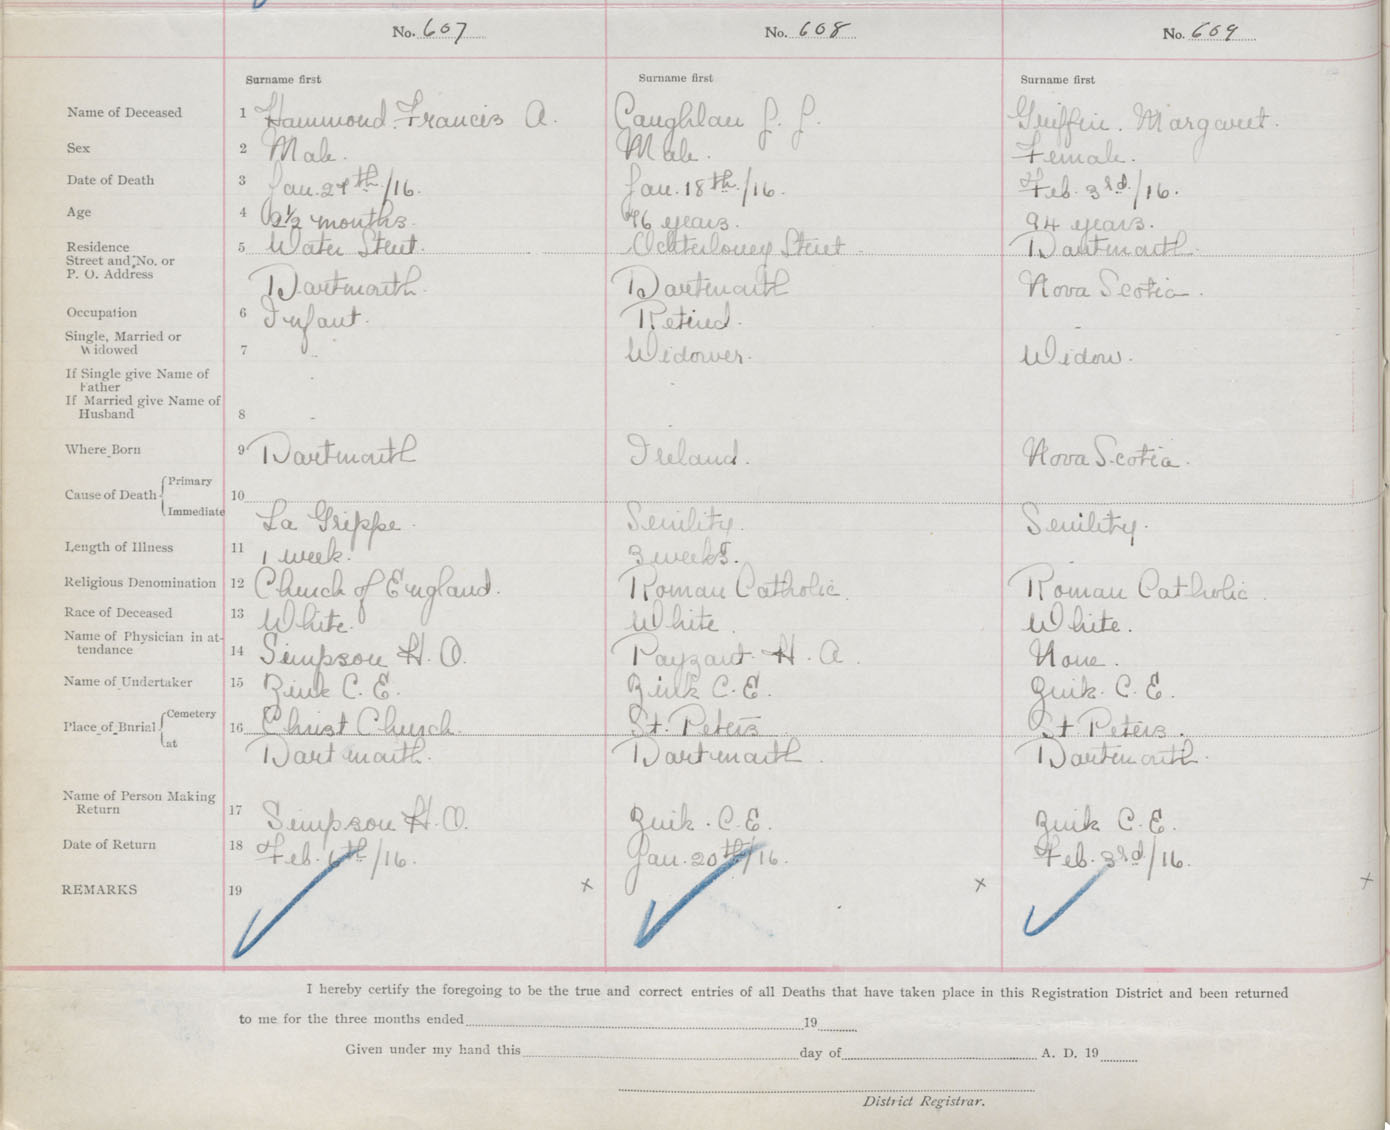 No. 607 No. 608 No. 609
Surname first Surname first Surname first
Name of Deceased 1 Hammond. Francis A. Caughlan J. J. Griffin. Margaret.
Sex 2 Male. Male. Female.
Date of Death 3 Jan. 27th/16. Jan. 18th/16. Feb. 3rd/16.
Age 4 2½ months. 76 years. 94 years.
Residence 5 Water Street. Ochterloney Street Dartmouth.
Street and No. or
P. O. Address Dartmouth. Dartmouth Nova Scotia.
Occupation 6 Infant. Retired. -
Single, Married or
Widowed 7 - Widower. Widow.
If Single give Name of
Father - -
If Married give Name of
Husband 8 -
Where Born 9 Dartmouth Ireland. Nova Scotia.
Cause of Death Primary 10
Immediate La Grippe. Senility. Senility.
Length of Illness 11 1 week. 3 weeks.
Religious Denomination 12 Church of England. Roman Catholic. Roman Catholic.
Race of Deceased 13 White. White. White.
Name of Physician in at-
tendance 14 Simpson H. O. Payzant H. A. None.
Name of Undertaker 15 Zink C. E. Zink C. E. Zink. C. E.
Place of Burial Cemetery 16 Christ Church. St. Peters St. Peters.
at Dartmouth. Dartmouth. Dartmouth.
Name of Person Making
Return 17 Simpson H. O. Zink. C. E. Zink C. E.
Date of Return 18 Feb. 6th/16. Jan. 20th/16. Feb. 3rd/16.
REMARKS 19 x x x
I hereby certify the foregoing to be the true and correct entries of all Deaths that have taken place in this Registration District and been returned
to me for the three months ended 19
Given under my hand this day of A. D. 19
District Registrar.